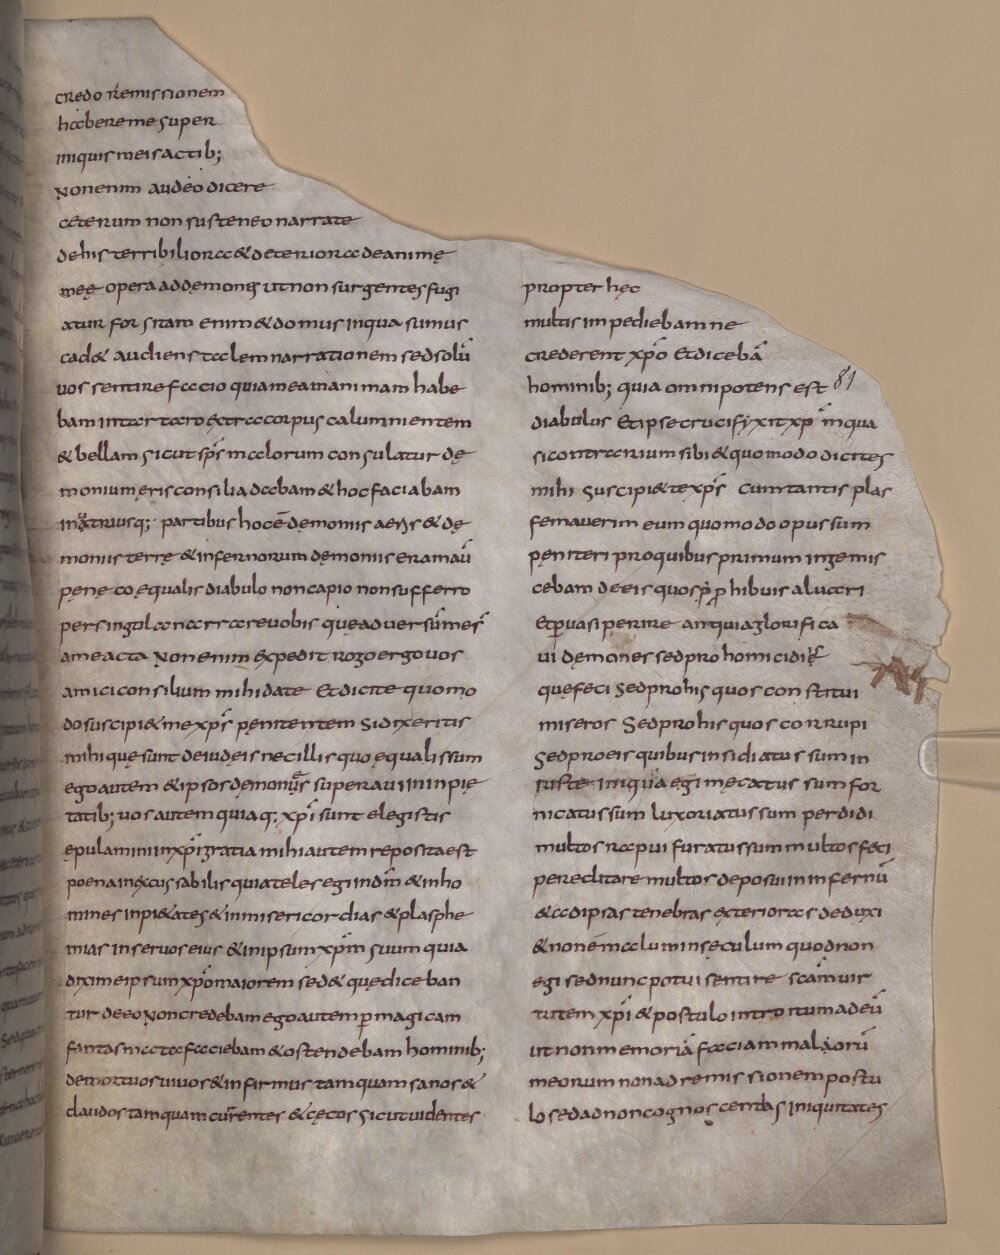 credo remissionem
habere me super
iniquis meis actib;
Non enim audeo dicere
ceterum non susteneo narrare
de his terribiliora & deteriora de animę
meę opera ad demonis ut non surgentes fugi
atur forsitam enim & domus in qua sumus
cad& audiens talem narrationem sed solū
vos sentire facio quia meam animam habe
bam intarta ro extra corpus calumnientem
& bellam sicut sp̄s malorum consulatur dę
monium ęris consilia dabam & hoc faciabam
in utriusq; partibus hoc ē demoniis aeris & dę
moniis terrę & infernorum dęmoniis eram aū
penę coequalis diabulo non capio non sufferro
per singola narrare vobis quę adversū mes̄
a me acta Non enim expedit rogo ergo vos
amici consilium mihi date Et dicite quomo
do suscipi& me xp̄s pęnitentem Si dixeritis
mihi quę sunt de iudeis nec illis quo ęqualis sum
ego autem & ipsos demonus superavi in inpię
tatib; vos autem quia q; xp̄i sunt elegistis
ępulamini in xp̄i gratia mihi autem reposita est
poena inexcusabilis quia teles egi in dm̄ & in ho
mines inpi&ates & inmisericordias & plasphe
mias in servos eius & in ipsum xp̄m suum quia
dixi me ipsum xp̄o maiorem sed & quę diceban
tur de eo Non credebam ego autem p magicam
fantasmata faciebam & ostendebam hominib;
de mortuos vivos & infirmus tamquam sanos &
claudos tamquam currentes & cęcos sicut videntes
propter hęc
multis impediebam ne
crederent xp̄o Et dicebā
hominib; quia omnipotens est
81
diabulus Et ipse crucifyxit xp̄m in qua
si contrarium sibi & quomodo dicites
mihi Suscipi& te xp̄s Cum tantis plas
femaverim eum quomodo opus sum
pęniteri pro quibus primum ingemis
cebam de eis quos p p hibuis a lucari
Et p vasi perire an quia glorifica
vi dęmones sed pro homicidiis
quę feci Sed pro his quos constitui
miseros Sed pro his quos corrupi
Sed pro eis quibus insidiatus sum in
iuste iniqua egi męcatus sum for
nicatus sum luxoriatus sum perdidi
multos rapui furatus sum multos feci
pereclitare multos deposui in infernū
& ad ipsas tenebras exteriores deduxi
& non ē malum in sęculum quod non
egi sed nunc potui sentire scām vir
tutem xp̄i & postulo introitum ad eū
ut non memoriā faciam malorū
meorum non ad remissionem postu
lo sed ad non cognoscendas iniquitates